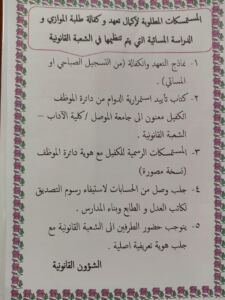 المستمسكات المطلوبة لإكمال تعهد و كفالة طلبة الموازي و
الدراسة المسائية التي يتم تنظيمها في الشعبة القانونية
١- نماذج التعهد والكفالة (من التسجيل الصباحي او
المسائي) .
٢- كتاب تأييد استمرارية الدوام من دائرة الموظف
الكفيل معنون الى جامعة الموصل /كلية الآداب –
الشعبة القانونية .
٣- المستمسكات الرسمية للكفيل مع هوية دائرة الموظف
(نسخة مصورة)
٤- جلب وصل من الحسابات لاستيفاء رسوم التصديق
لكاتب العدل و الطابع وبناء المدارس .
٥- يتوجب حضور الطرفين الى الشعبة القانونية مع
جلب هوية تعريفية اصلية .
الشؤون القانونية